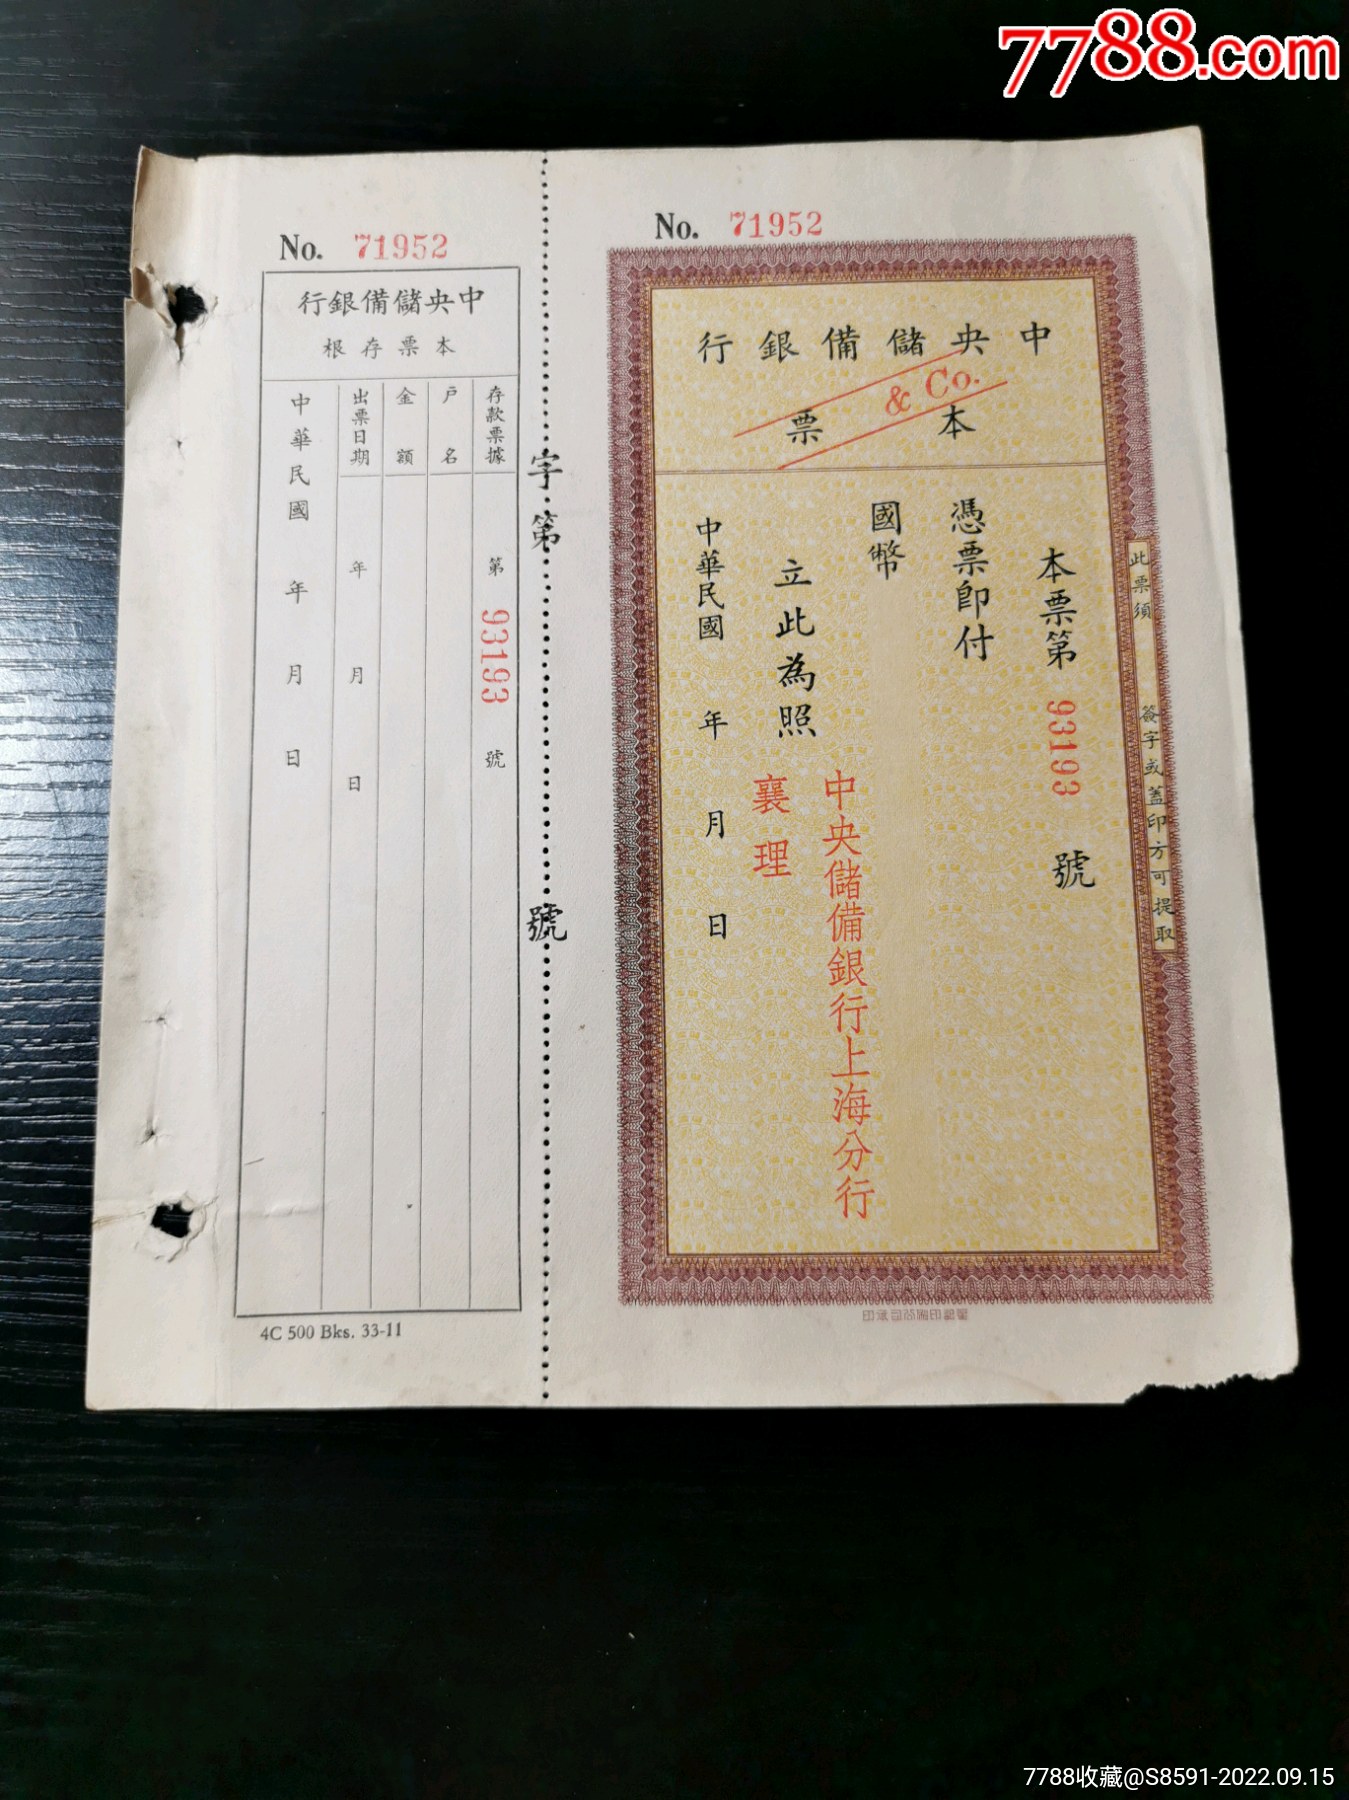 7788.com
No. 71952
中央儲備銀行
本票存根
存款票據 第 93193 號
戶名
金額
出票日期 年 月 日
中華民國 年 月 日
4C 500 Bks. 33-11
字第 號
No. 71952
中央儲備銀行
& Co.
本票
此票須 簽字或蓋印方可提取
本票第 93193 號
憑票即付
國幣
中央儲備銀行上海分行
立此為照
襄理
中華民國 年 月 日
7788收藏@S8591-2022.09.15